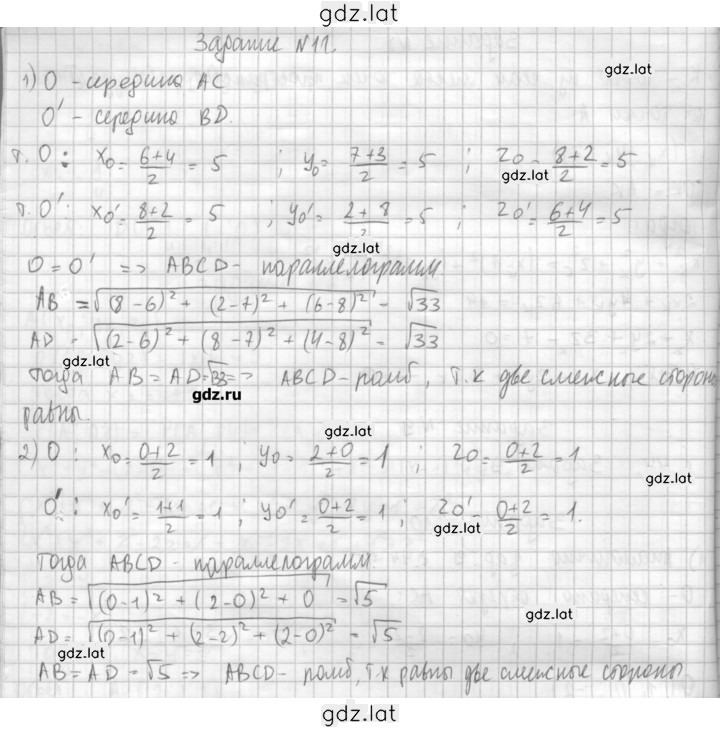 gdz.lat
Задание №11.
gdz.lat
1) O - середина AC
O' - середина BD.
т. O: x₀ = (6+4)/2 = 5 ; y₀ = (7+3)/2 = 5 ; z₀ = (8+2)/2 = 5
gdz.lat
т. O': x₀' = (8+2)/2 = 5 ; y₀' = (2+8)/2 = 5 ; z₀' = (6+4)/2 = 5
gdz.lat
O = O' => ABCD - параллелограмм
AB = √((8-6)² + (2-7)² + (6-8)²) = √33
AD = √((2-6)² + (8-7)² + (4-8)²) = √33
gdz.lat
тогда AB = AD = √33 => ABCD - ромб, т.к две смежные стороны
gdz.ru
равны.
gdz.lat
2) O : x₀ = (0+2)/2 = 1 , y₀ = (2+0)/2 = 1 ; z₀ = (0+2)/2 = 1
gdz.lat
O' : x₀' = (1+1)/2 = 1 ; y₀' = (0+2)/2 = 1 ; z₀' = (0+2)/2 = 1.
gdz.lat
тогда ABCD - параллелограмм.
AB = √((0-1)² + (2-0)² + 0) = √5
gdz.lat
AD = √((0-1)² + (2-2)² + (2-0)²) = √5
gdz.lat
AB = AD = √5 => ABCD - ромб, т.к равны две смежные стороны
gdz.lat